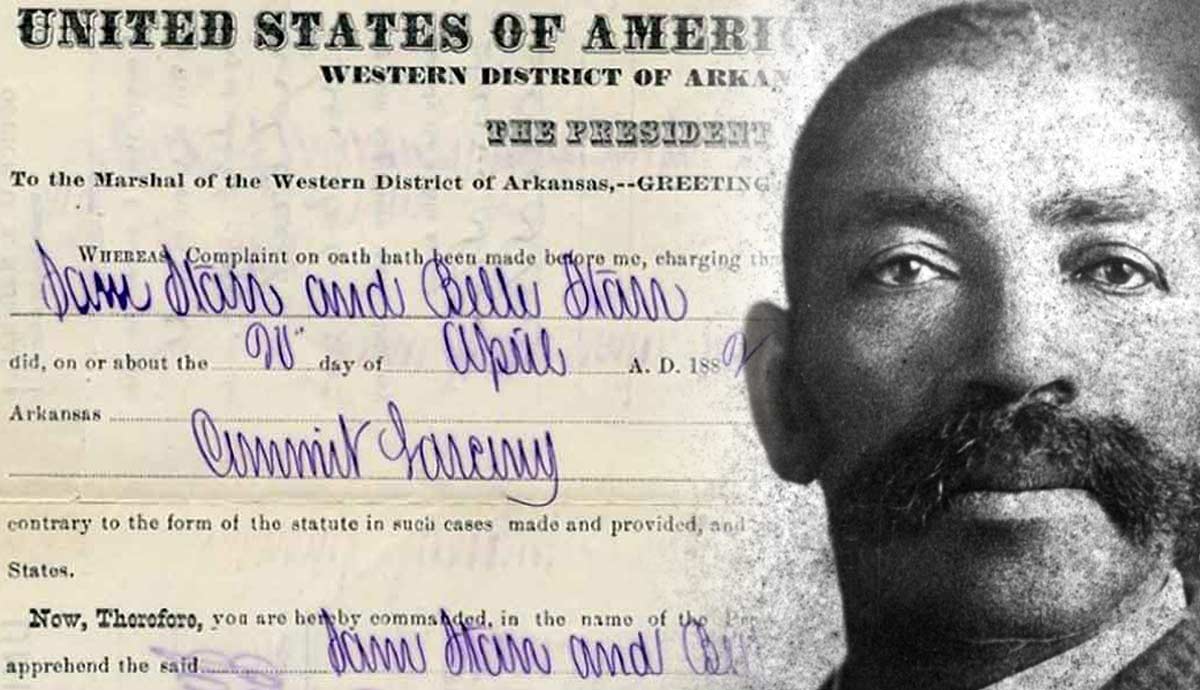 UNITED STATES OF AMERI
WESTERN DISTRICT OF ARKA
THE PRESIDENT
To the Marshal of the Western District of Arkansas,--GREETING
WHEREAS, Complaint on oath hath been made before me, charging th
Sam Starr and Belle Starr
did, on or about the 20" day of April A. D. 1882
Arkansas
Commit Larceny
contrary to the form of the statute in such cases made and provided, and
States.
Now, Therefore, you are hereby commanded, in the name of the Pre
apprehend the said Sam Starr and Bel